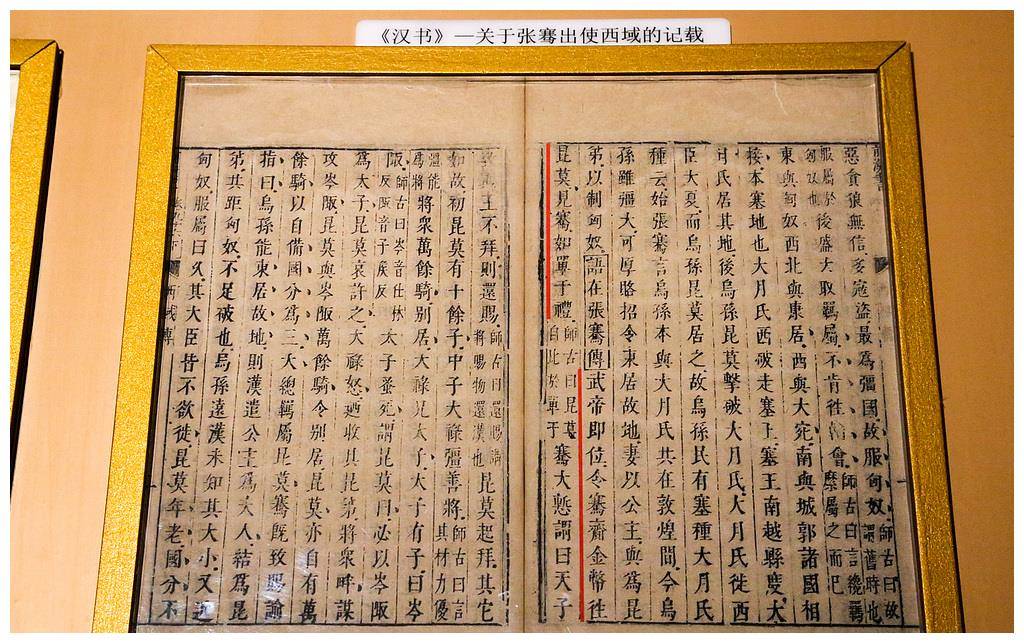 《汉书》—关于张骞出使西域的记载
惡貪狼無信多寇盜最爲彊國故服匈奴師古曰故謂舊時也
服屬於匈奴也後盛大取羈屬不肯往朝會師古曰言纔羈縻屬之而已
東與匈奴西北與康居西與大宛南與城郭諸國相
接本塞地也大月氏西破走塞王塞王南越縣度大
月氏居其地後烏孫昆莫擊破大月氏大月氏徙西
臣大夏而烏孫昆莫居之故烏孫民有塞種大月氏
種云始張騫言烏孫本與大月氏共在敦煌間今烏
孫雖彊大可厚賂招令東居故地妻以公主與爲昆
弟以制匈奴語在張騫傳武帝即位令騫齎金幣往
昆莫見騫如單于禮師古曰昆莫自比於單于騫大慙謂曰天子
王不拜則還賜師古曰還賜謂將賜物還漢也昆莫起拜其它
如故初昆莫有十餘子中子大祿彊善將師古曰言其材力優
能爲將將衆萬餘騎別居大祿兄太子太子有子曰岑
陬師古曰岑音仕林反陬音子侯反太子蚤死謂昆莫曰必以岑陬
爲太子昆莫哀許之大祿怒迺收其昆弟將衆畔謀
攻岑陬昆莫與岑陬萬餘騎令別居昆莫亦自有萬
餘騎以自備國分爲三大總羈屬昆莫騫既致賜諭
指曰烏孫能東居故地則漢遣公主爲夫人結爲昆
弟共距匈奴不足破也烏孫遠漢未知其大小又近
匈奴服屬日久其大臣皆不欲徙昆莫年老國分不